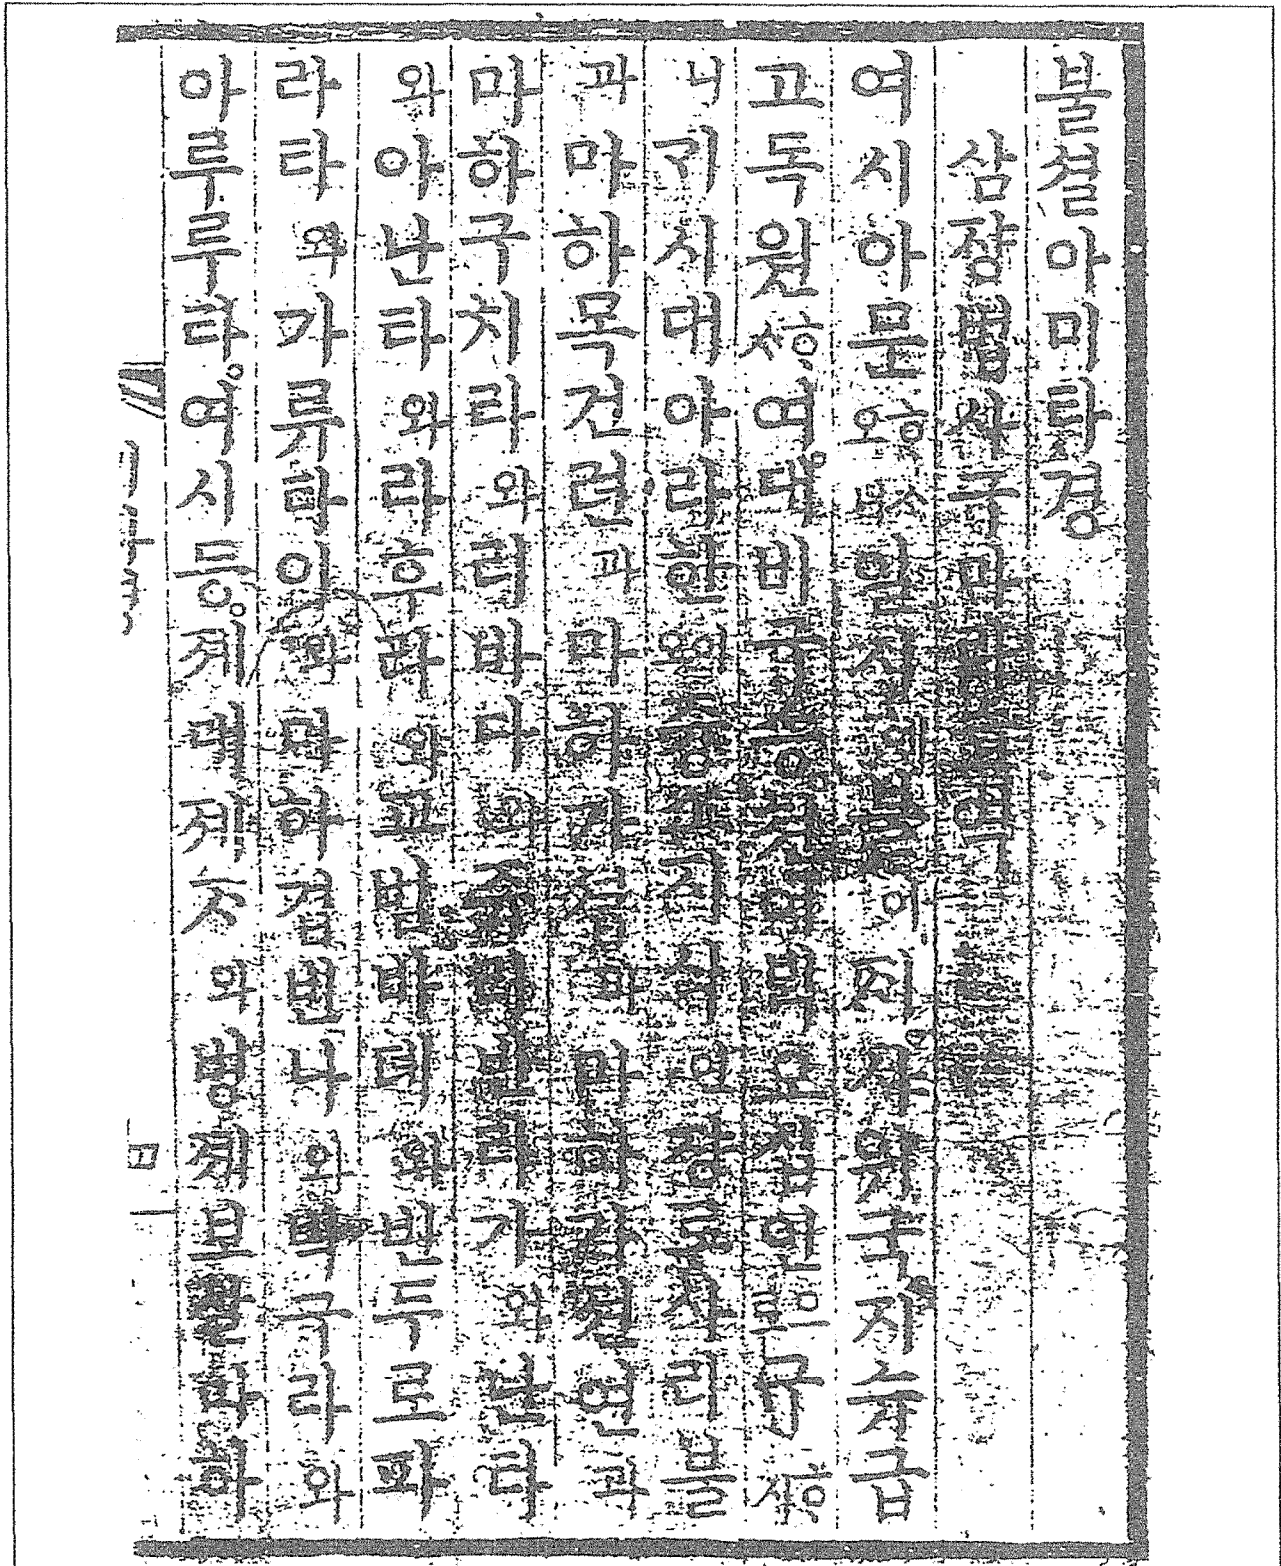 불셜아미타경
삼쟝법사구마라즙역
여시아문ᄒᆞ오ᄉᆞ다일시에불이ᄌᆡ샤위국지슈급
고독원ᄒᆞ샤여대비구즁쳔이ᄇᆡᆨ오십인으로구ᄒᆞ샤
니ᄀᆡ시대아라한이오즁소지식인쟝로샤리블
과마하목건련과마하가셥과마하가젼연과
마하구치라와리바다와쥬리반타가와난타
와아난타와라후라와교범바뎨와빈두로파
라타와가류타이와마하겁빈나와박구라와
아루루타여시등졔대졔ᄌᆞ와병졔보살마하